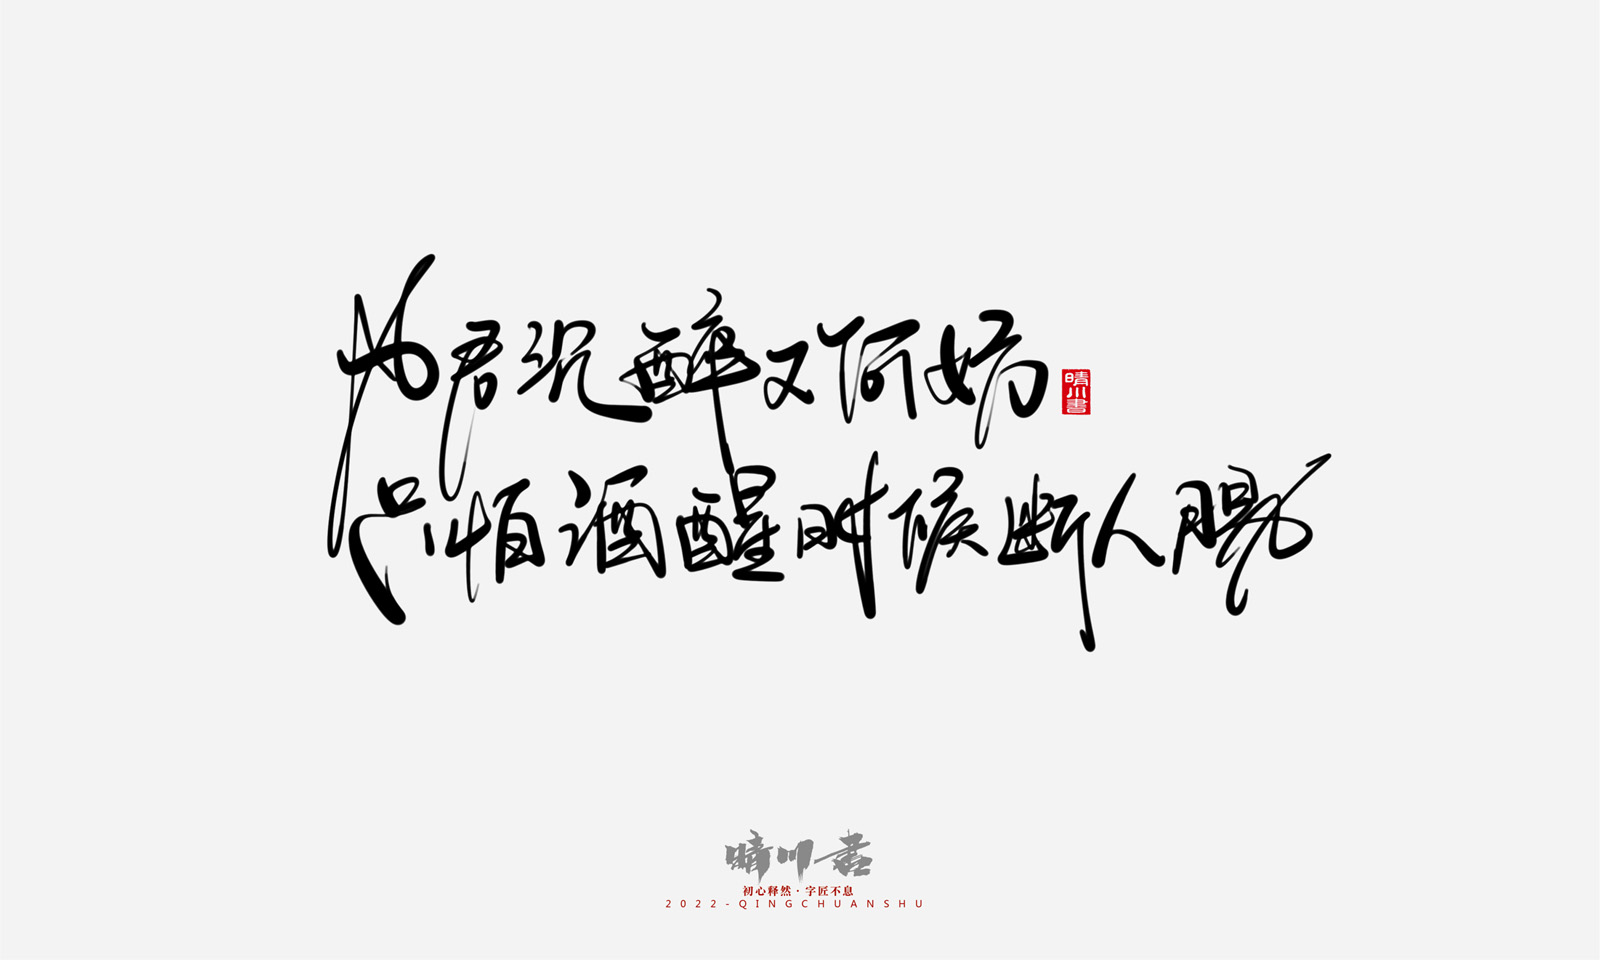 为君沉醉又何妨
晴川書
只怕酒醒时候断人腸
晴川書
初心释然·字匠不息
2022-QINGCHUANSHU